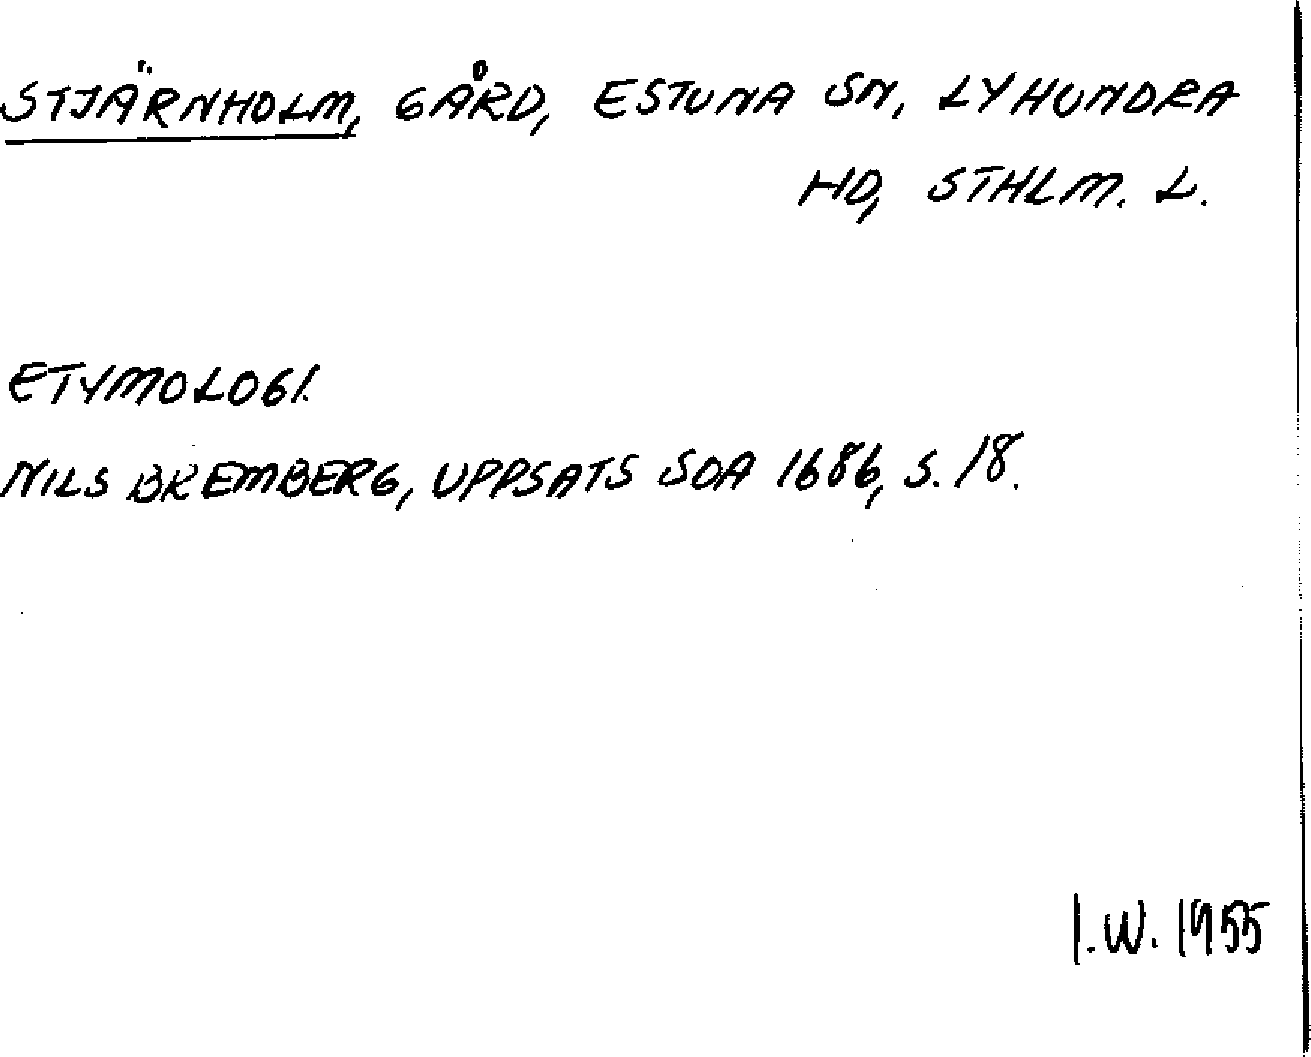 STJÄRNHOLM, GÅRD, ESTUNA SN, LYHUNDRA
HD, STHLM. L.
ETYMOLOGI.
NILS BREMBERG, UPPSATS SOA 1686, S. 18.
I.W. 1955